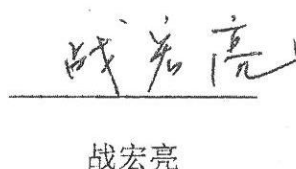 战宏亮
战宏亮